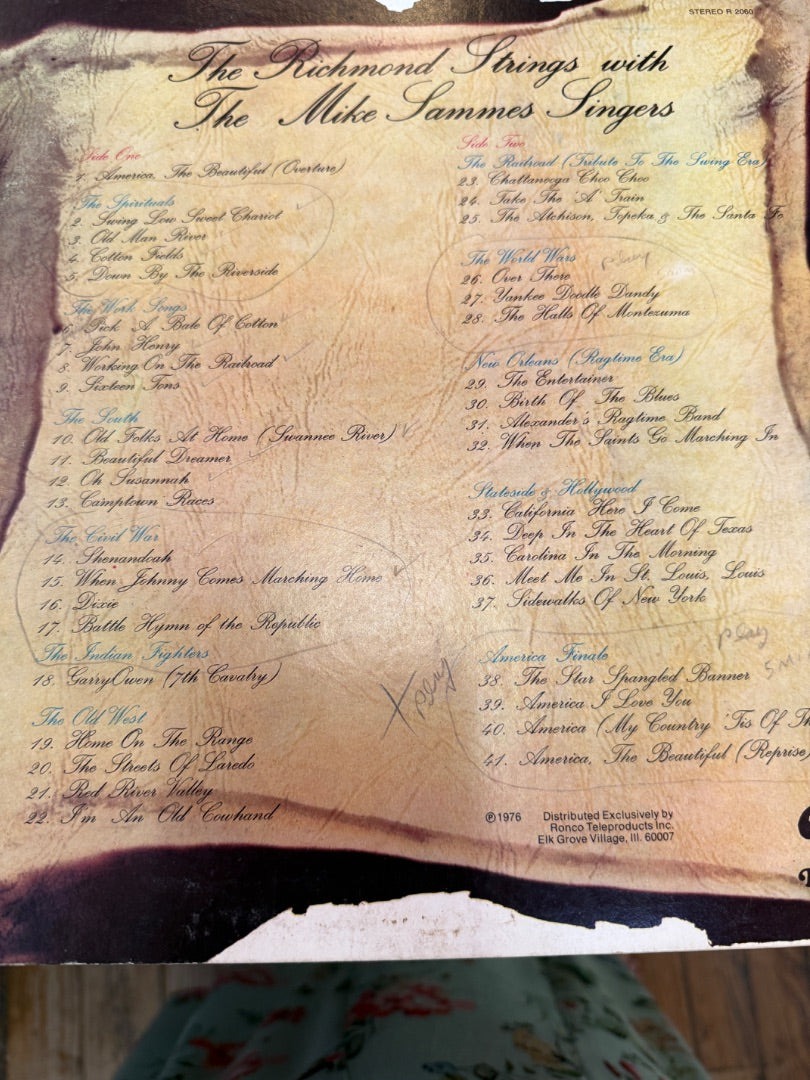 STEREO R 2060
The Richmond Strings with
The Mike Sammes Singers
Side One
1. America, The Beautiful (Overture)
The Spirituals
2. Swing Low Sweet Chariot
3. Old Man River
4. Cotton Fields
5. Down By The Riverside
The Work Songs
6. Pick A Bale Of Cotton
7. John Henry
8. Working On The Railroad
9. Sixteen Tons
The South
10. Old Folks At Home (Swannee River)
11. Beautiful Dreamer
12. Oh Susannah
13. Camptown Races
The Civil War
14. Shenandoah
15. When Johnny Comes Marching Home
16. Dixie
17. Battle Hymn of the Republic
The Indian Fighters
18. GarryOwen (7th Cavalry)
X play
The Old West
19. Home On The Range
20. The Streets Of Laredo
21. Red River Valley
22. I'm An Old Cowhand
Side Two
The Railroad (Tribute To The Swing Era)
23. Chattanooga Choo Choo
24. Take The 'A' Train
25. The Atchison, Topeka & The Santa Fe
The World Wars play
26. Over There
27. Yankee Doodle Dandy
28. The Halls Of Montezuma
New Orleans (Ragtime Era)
29. The Entertainer
30. Birth Of The Blues
31. Alexander's Ragtime Band
32. When The Saints Go Marching In
Stateside & Hollywood
33. California Here I Come
34. Deep In The Heart Of Texas
35. Carolina In The Morning
36. Meet Me In St. Louis, Louis
37. Sidewalks Of New York
play
America Finale
38. The Star Spangled Banner
39. America I Love You
40. America (My Country 'Tis Of Th
41. America, The Beautiful (Reprise)
℗1976 Distributed Exclusively by
Ronco Teleproducts Inc.
Elk Grove Village, Ill. 60007